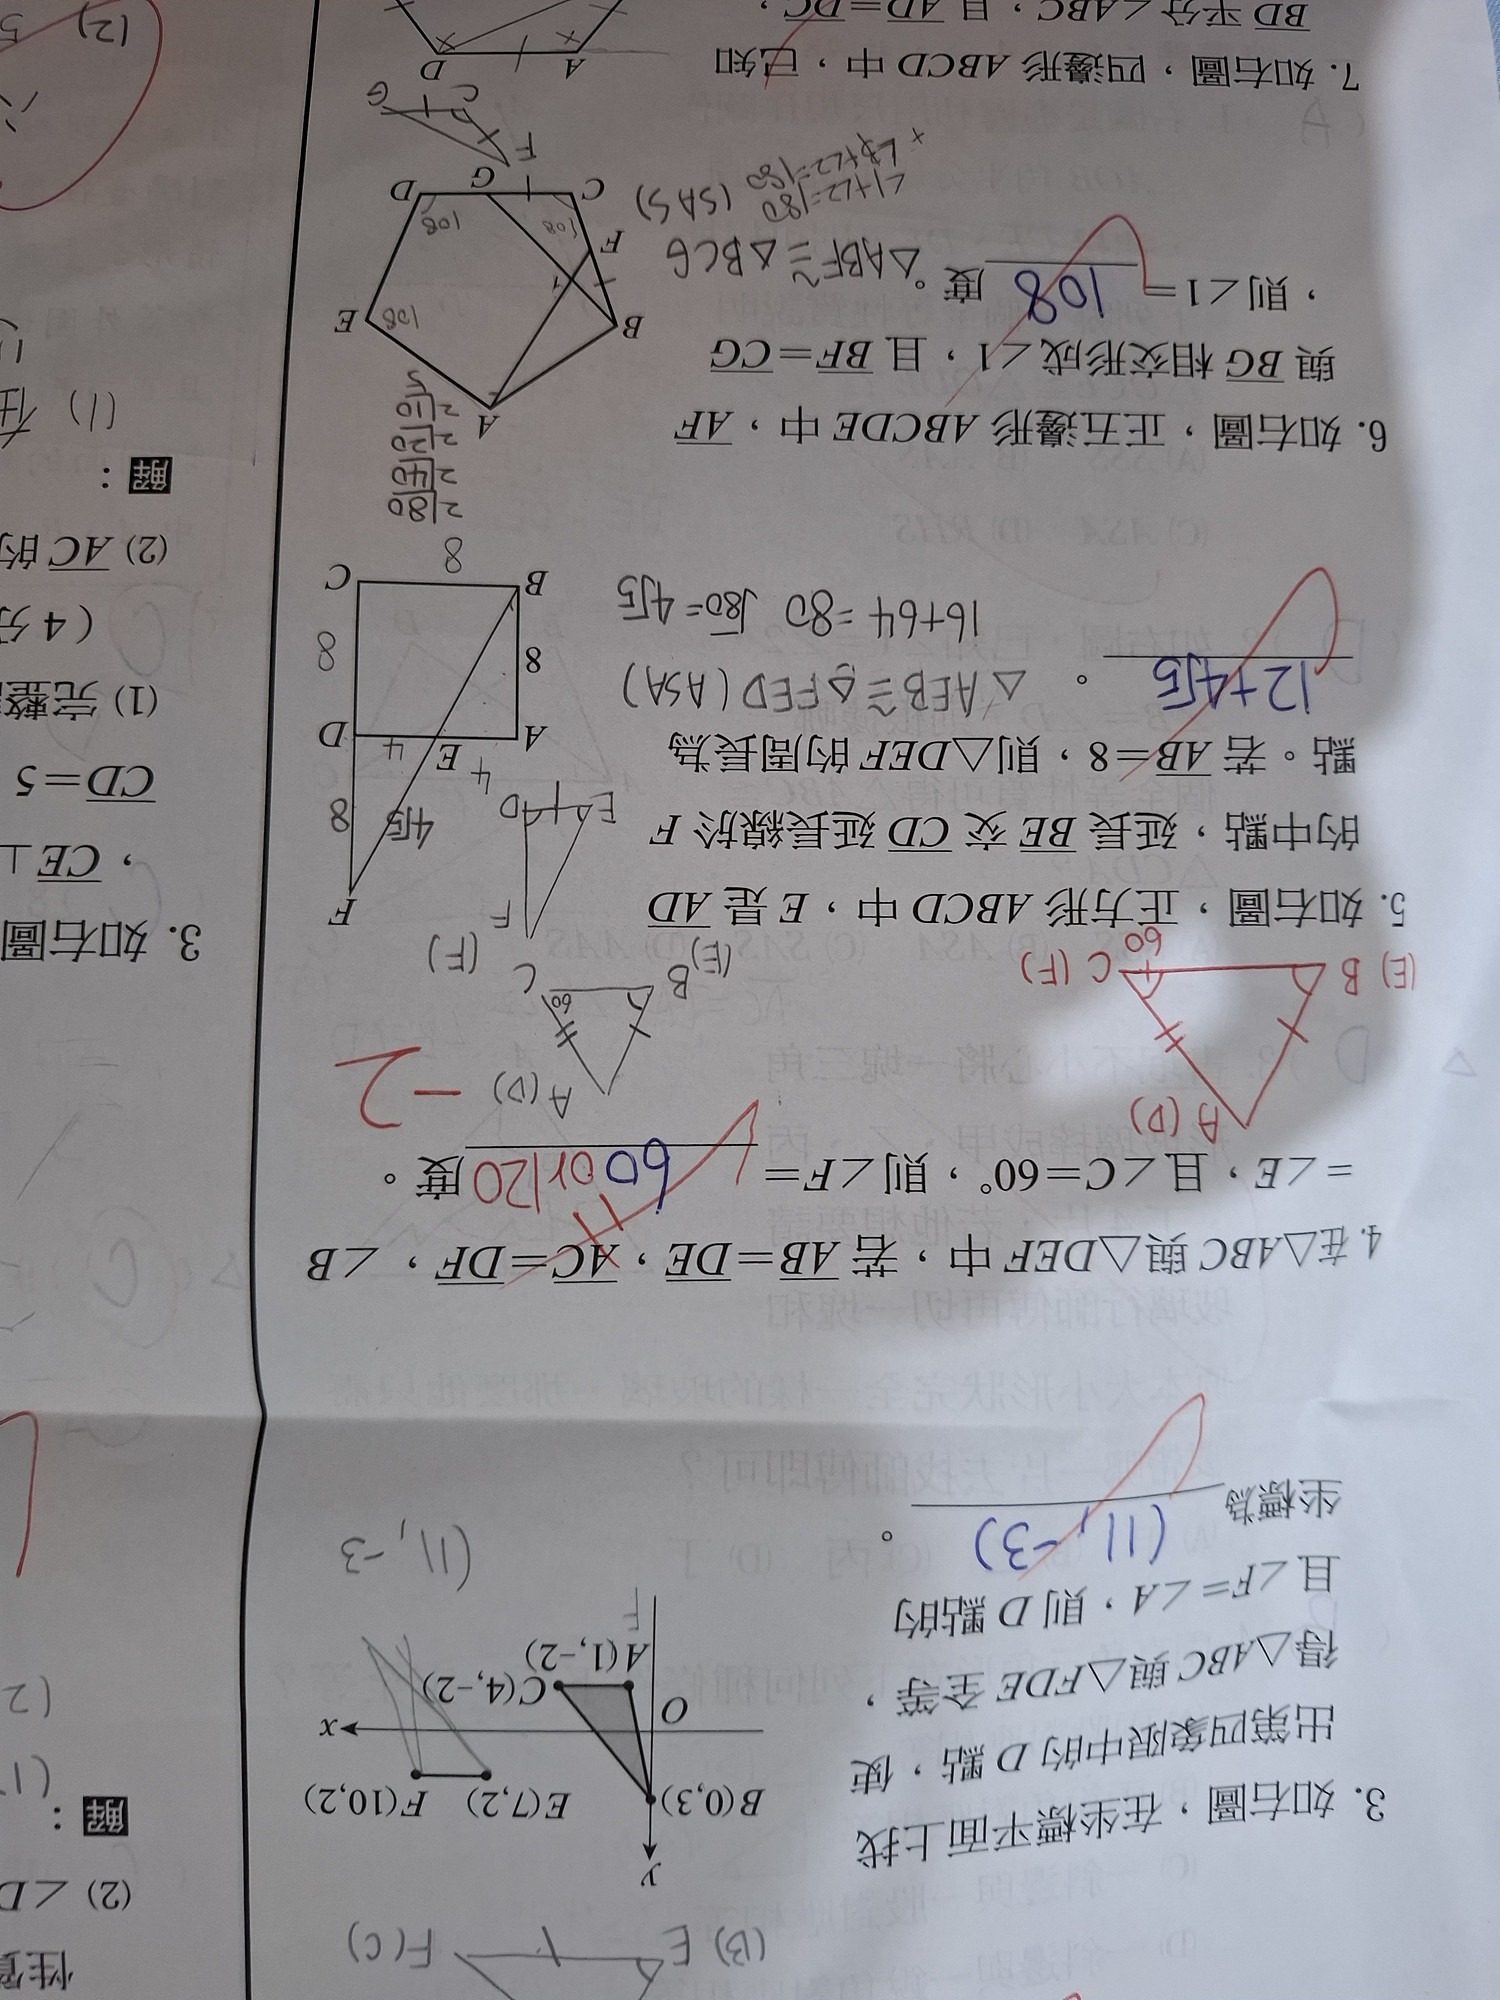 (B) E F(C)
3. 如右圖，在坐標平面上找
出第四象限中的 D 點，使
得△ABC 與△FDE 全等，
且∠F=∠A，則 D 點的
坐標為 (11, -3) 。
y
B(0,3)
E(7,2)
F(10,2)
O
x
A(1,-2)
C(4,-2)
F
(11, -3
4. 在△ABC 與△DEF 中，若 AB=DE，AC=DF，∠B
=∠E，且∠C=60°，則∠F= 60 or 120 度。
-2
A (D)
(E) B
C (F)
60
A (D)
B (E)
C (F)
60
5. 如右圖，正方形 ABCD 中，E 是 AD
的中點，延長 BE 交 CD 延長線於 F
點。若 AB=8，則△DEF 的周長為
12+4√5 。
△AEB≅△FED (ASA)
16+64=80 √80=4√5
F
E
D
F
8
4√5
A
4
E
4
D
8
8
B
C
8
6. 如右圖，正五邊形 ABCDE 中，AF
與 BG 相交形成∠1，且 BF=CG
，則∠1= 108 度。
△ABF≅△BCG
(SAS)
∠1+∠2=180
2|80
2|40
2|20
2|10
5
A
B
E
108
1
F
108
108
C
G
D
F
C
G
7. 如右圖，四邊形 ABCD 中，已知
BD 平分∠ABC，且 AD=DC，
A
D
性質
(2) ∠D
解：
(1)
(2
3. 如右圖
，CE⊥
CD=5
(1) 完整
(4 分
(2) AC 的
解：
(1) 在
(2) 5